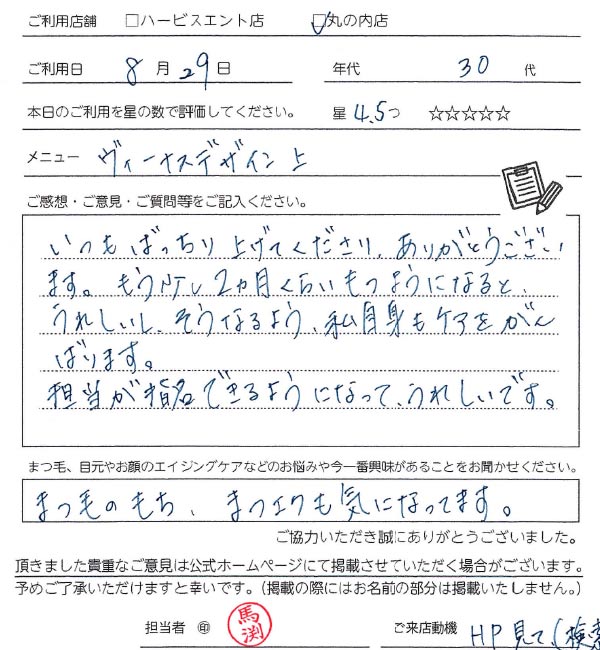 ご利用店舗 □ハービスエント店 ☑丸の内店
ご利用日 8月29日 年代 30代
本日のご利用を星の数で評価してください。 星 4.5つ ☆☆☆☆☆
メニュー ヴィーナスデザイン上
ご感想・ご意見・ご質問等をご記入ください。
いつもばっちり上げてくださり、ありがとうござい
ます。もう少し2ヵ月くらいもつようになると、
うれしいし、そうなるよう、私自身もケアをがん
ばります。
担当が指名できるようになって、うれしいです。
まつ毛、目元やお顔のエイジングケアなどのお悩みや今一番興味があることをお聞かせください。
まつ毛のもち、まつエクも気になってます。
ご協力いただき誠にありがとうございました。
頂きました貴重なご意見は公式ホームページにて掲載させていただく場合がございます。
予めご了承いただけますと幸いです。（掲載の際にはお名前の部分は掲載いたしません。）
担当者 ㊞ 馬渕 ご来店動機 HP見て、(検索